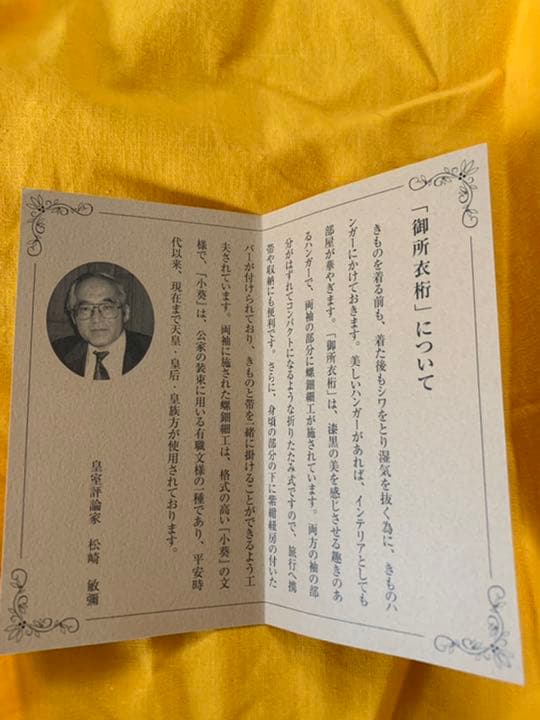 「御所衣桁」について
きものを着る前も、着た後もシワをとり湿気を抜く為に、きものハ
ンガーにかけておきます。美しいハンガーがあれば、インテリアとしても
部屋が華やぎます。「御所衣桁」は、漆黒の美を感じさせる趣きのあ
るハンガーで、両袖の部分に螺鈿細工が施されています。両方の袖の部
分がはずれてコンパクトになるような折りたたみ式ですので、旅行へ携
帯や収納にも便利です。さらに、身頃の部分の下に紫紺経房の付いた
バーが付けられており、きものと帯を一緒に掛けることができるよう工
夫されています。両袖に施された螺鈿細工は、格式の高い「小葵」の文
様で、「小葵」は、公家の装束に用いる有職文様の一種であり、平安時
代以来、現在まで天皇・皇后・皇族方が使用されております。
皇室評論家 松崎 敏彌